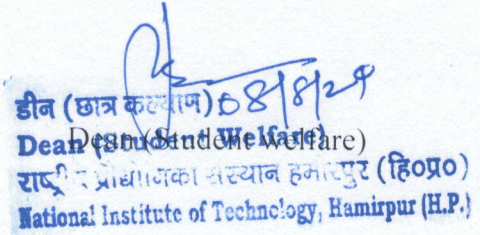 08/8/24
डीन (छात्र कल्याण)
Dean (Student Welfare)
Dean (Student welfare)
राष्ट्रीय प्रौद्योगिकी संस्थान हमीरपुर (हि०प्र०)
National Institute of Technology, Hamirpur (H.P.)